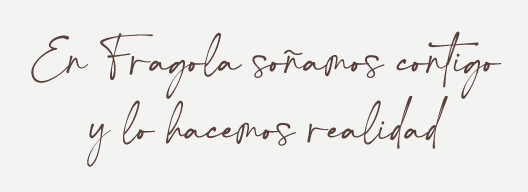 En Fragola soñamos contigo
y lo hacemos realidad